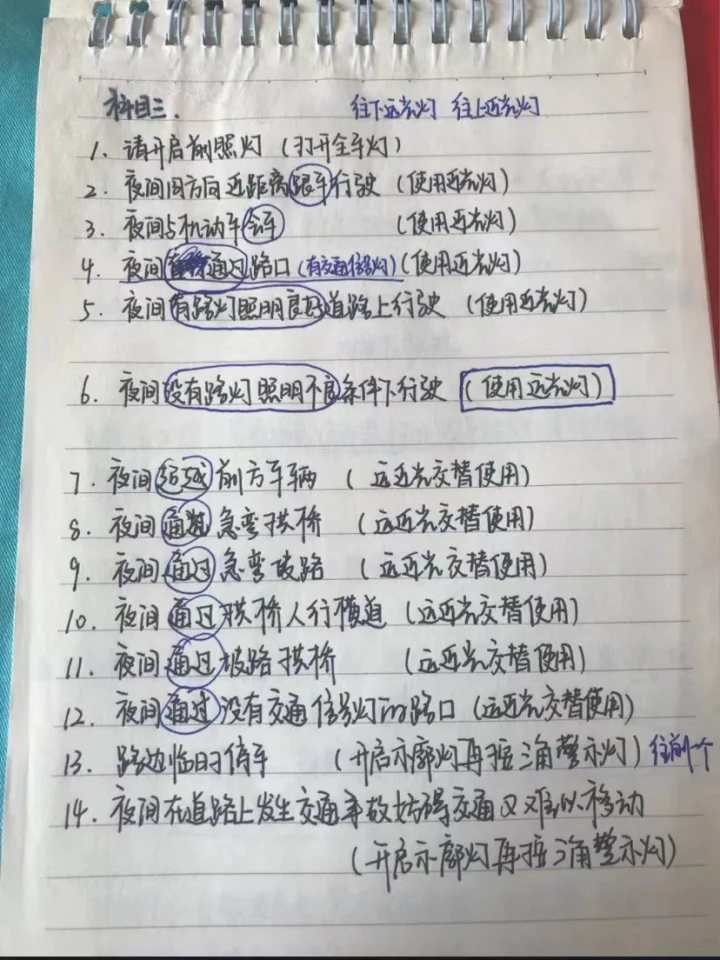 科目三. 往下远光灯 往上近光灯
1. 请开启前照灯 (打开全车灯)
2. 夜间同方向近距离跟车行驶 (使用近光灯)
3. 夜间与机动车会车 (使用近光灯)
4. 夜间通过路口 (有交通信号灯) (使用近光灯)
5. 夜间有路灯照明良好道路上行驶 (使用近光灯)
6. 夜间没有路灯照明不良条件下行驶 (使用远光灯)
7. 夜间超越前方车辆 (远近光交替使用)
8. 夜间通过急弯拱桥 (远近光交替使用)
9. 夜间通过急弯坡路 (远近光交替使用)
10. 夜间通过拱桥人行横道 (远近光交替使用)
11. 夜间通过坡路拱桥 (远近光交替使用)
12. 夜间通过没有交通信号灯的路口 (远近光交替使用)
13. 路边临时停车 (开启示廓灯再按三角警示灯) 往前一个
14. 夜间在道路上发生交通事故妨碍交通又难以移动
(开启示廓灯再按三角警示灯)